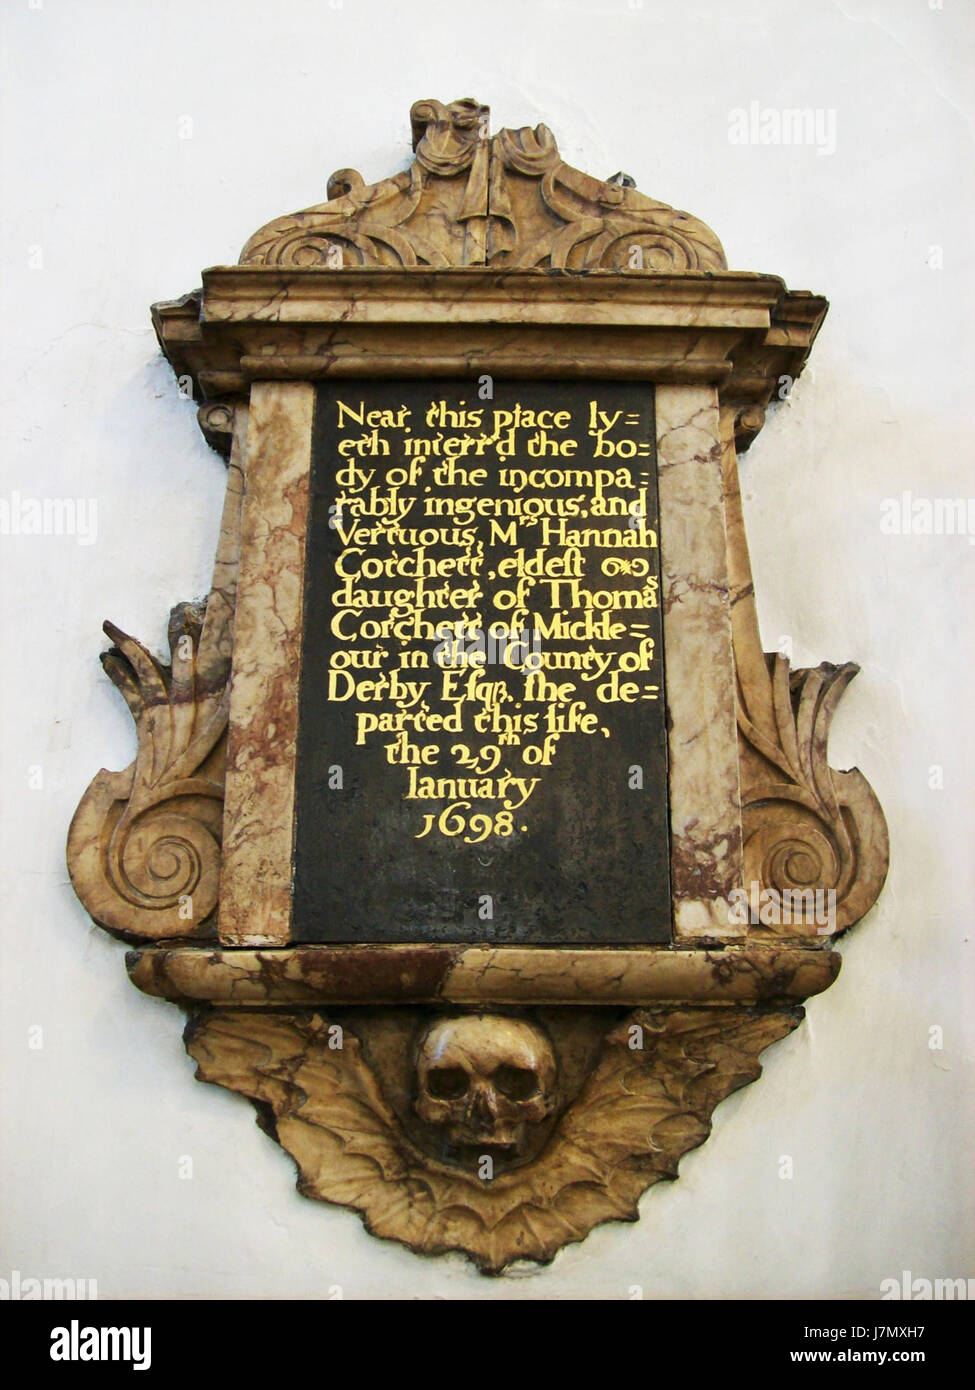 Near this place ly=
eth interr'd the bo=
dy of the incompa=
rably ingenious, and
Vertuous, Mrs Hannah
Cotchett, eldest
daughter of Thomas
Cotchett of Mickle=
our in the County of
Derby Esqr. she de=
parted this life,
the 29th of
Ianuary
1698.
alamy
Image ID: J7MXH7
www.alamy.com